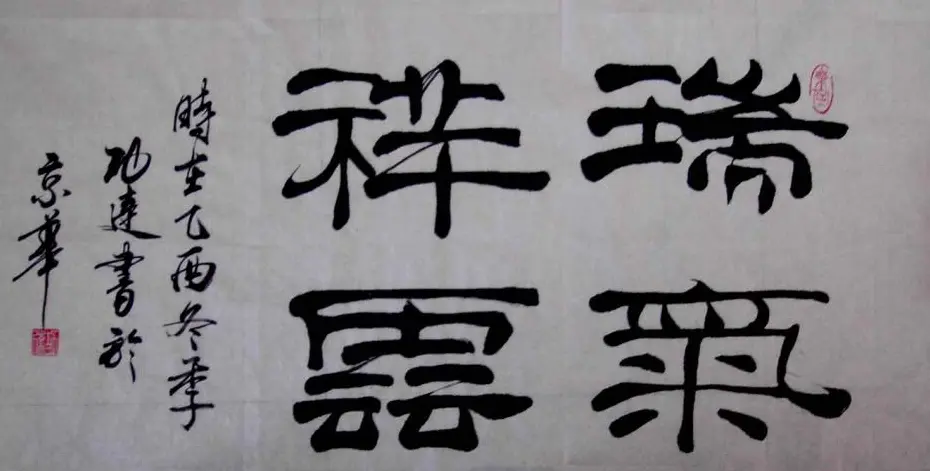 瑞氣
祥雲
時在乙酉冬季
功達書於
京華